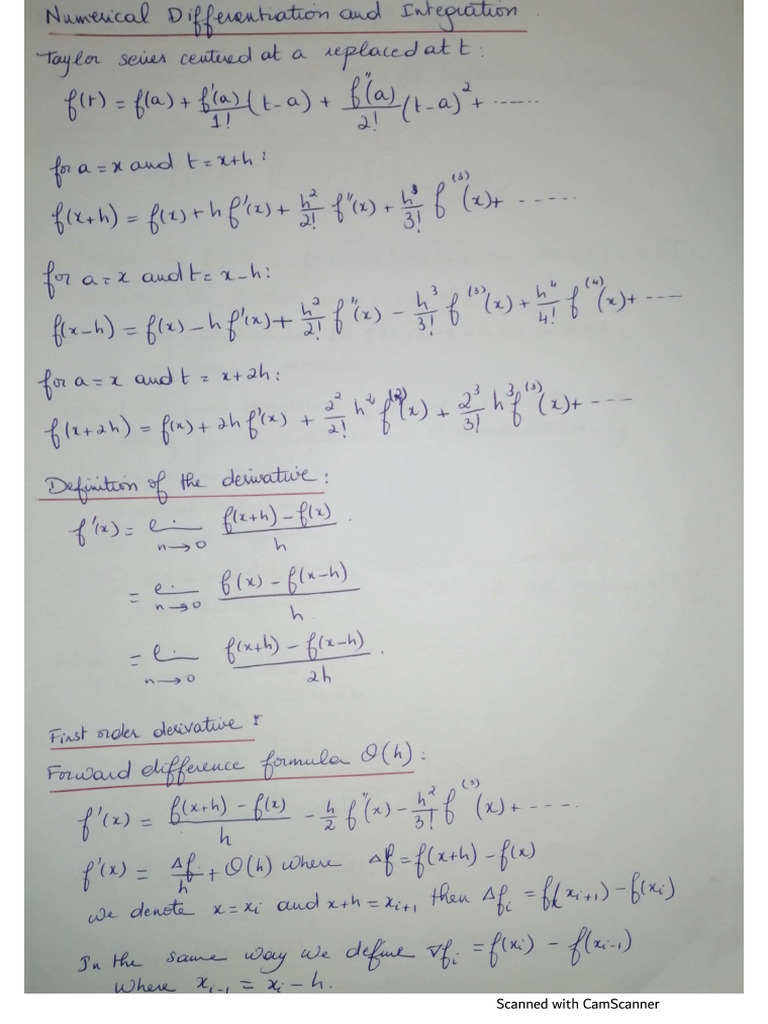 Numerical Differentiation and Integration
Taylor series centered at a replaced at t :
f(t) = f(a) + f'(a)/1! (t-a) + f''(a)/2! (t-a)² + ......
for a = x and t = x+h :
f(x+h) = f(x) + h f'(x) + h²/2! f''(x) + h³/3! f⁽³⁾(x) + ......
for a = x and t = x-h :
f(x-h) = f(x) - h f'(x) + h²/2! f''(x) - h³/3! f⁽³⁾(x) + h⁴/4! f⁽⁴⁾(x) + ----
for a = x and t = x+2h :
f(x+2h) = f(x) + 2h f'(x) + 2²/2! h² f⁽²⁾(x) + 2³/3! h³ f⁽³⁾(x) + ----
Definition of the derivative :
f'(x) = n→0 (f(x+h) - f(x))/h .
= n→0 (f(x) - f(x-h))/h
= n→0 (f(x+h) - f(x-h))/2h .
First order derivative :
Forward difference formula O(h) :
f'(x) = (f(x+h) - f(x))/h - h/2 f''(x) - h²/3! f⁽³⁾(x) + ----.
f'(x) = Δf/h + O(h) where Δf = f(x+h) - f(x)
we denote x = xᵢ and x+h = xᵢ₊₁ then Δfᵢ = f(xᵢ₊₁) - f(xᵢ)
In the same way we define ∇fᵢ = f(xᵢ) - f(xᵢ₋₁)
where xᵢ₋₁ = xᵢ - h.
Scanned with CamScanner